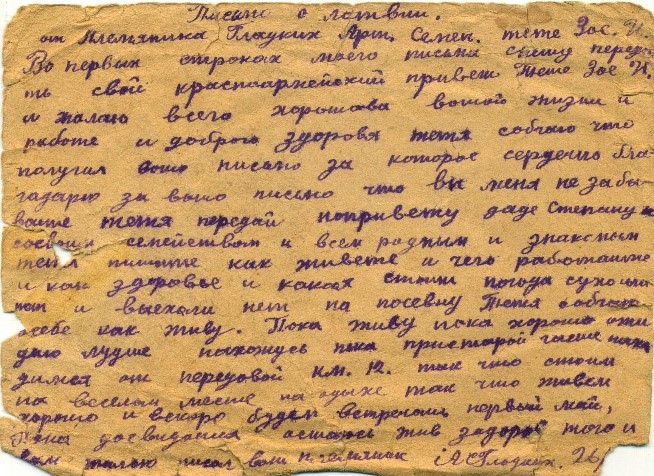 Письмо с латвии.
от Племяника Гладких Арт. Семен. тете Зос. И.
Во первых строках моего письма спешу переда
ть свой красноармейский привет Тете Зое И.
и желаю всего хорошава вашой жизни и
работе и доброго здоровя тетя собчаю что
получил вашо письмо за которое сердечно бла
годарю за вашо письмо что вы меня не забы
ваите тетя передай попривету даде Степану и
сосвоим семейством и всем родным и знакомым
тетя пишите как живете и чего работаите
и как здоровье и какая стоит погода сухо или
нет и выехали нет на посевну Тетя собчаю
осебе как живу. Пока живу пока хорошо ожи
даю лудше нахожусь пока пристарой части нахо
димся от передовой км. 12. так что стоим
на веселом месте на одыхе так что живем
хорошо и вскоро будем встречать первый май,
Пока досвидания остаюсь жив здоров того и
вам желаю писал ваш племяник 26